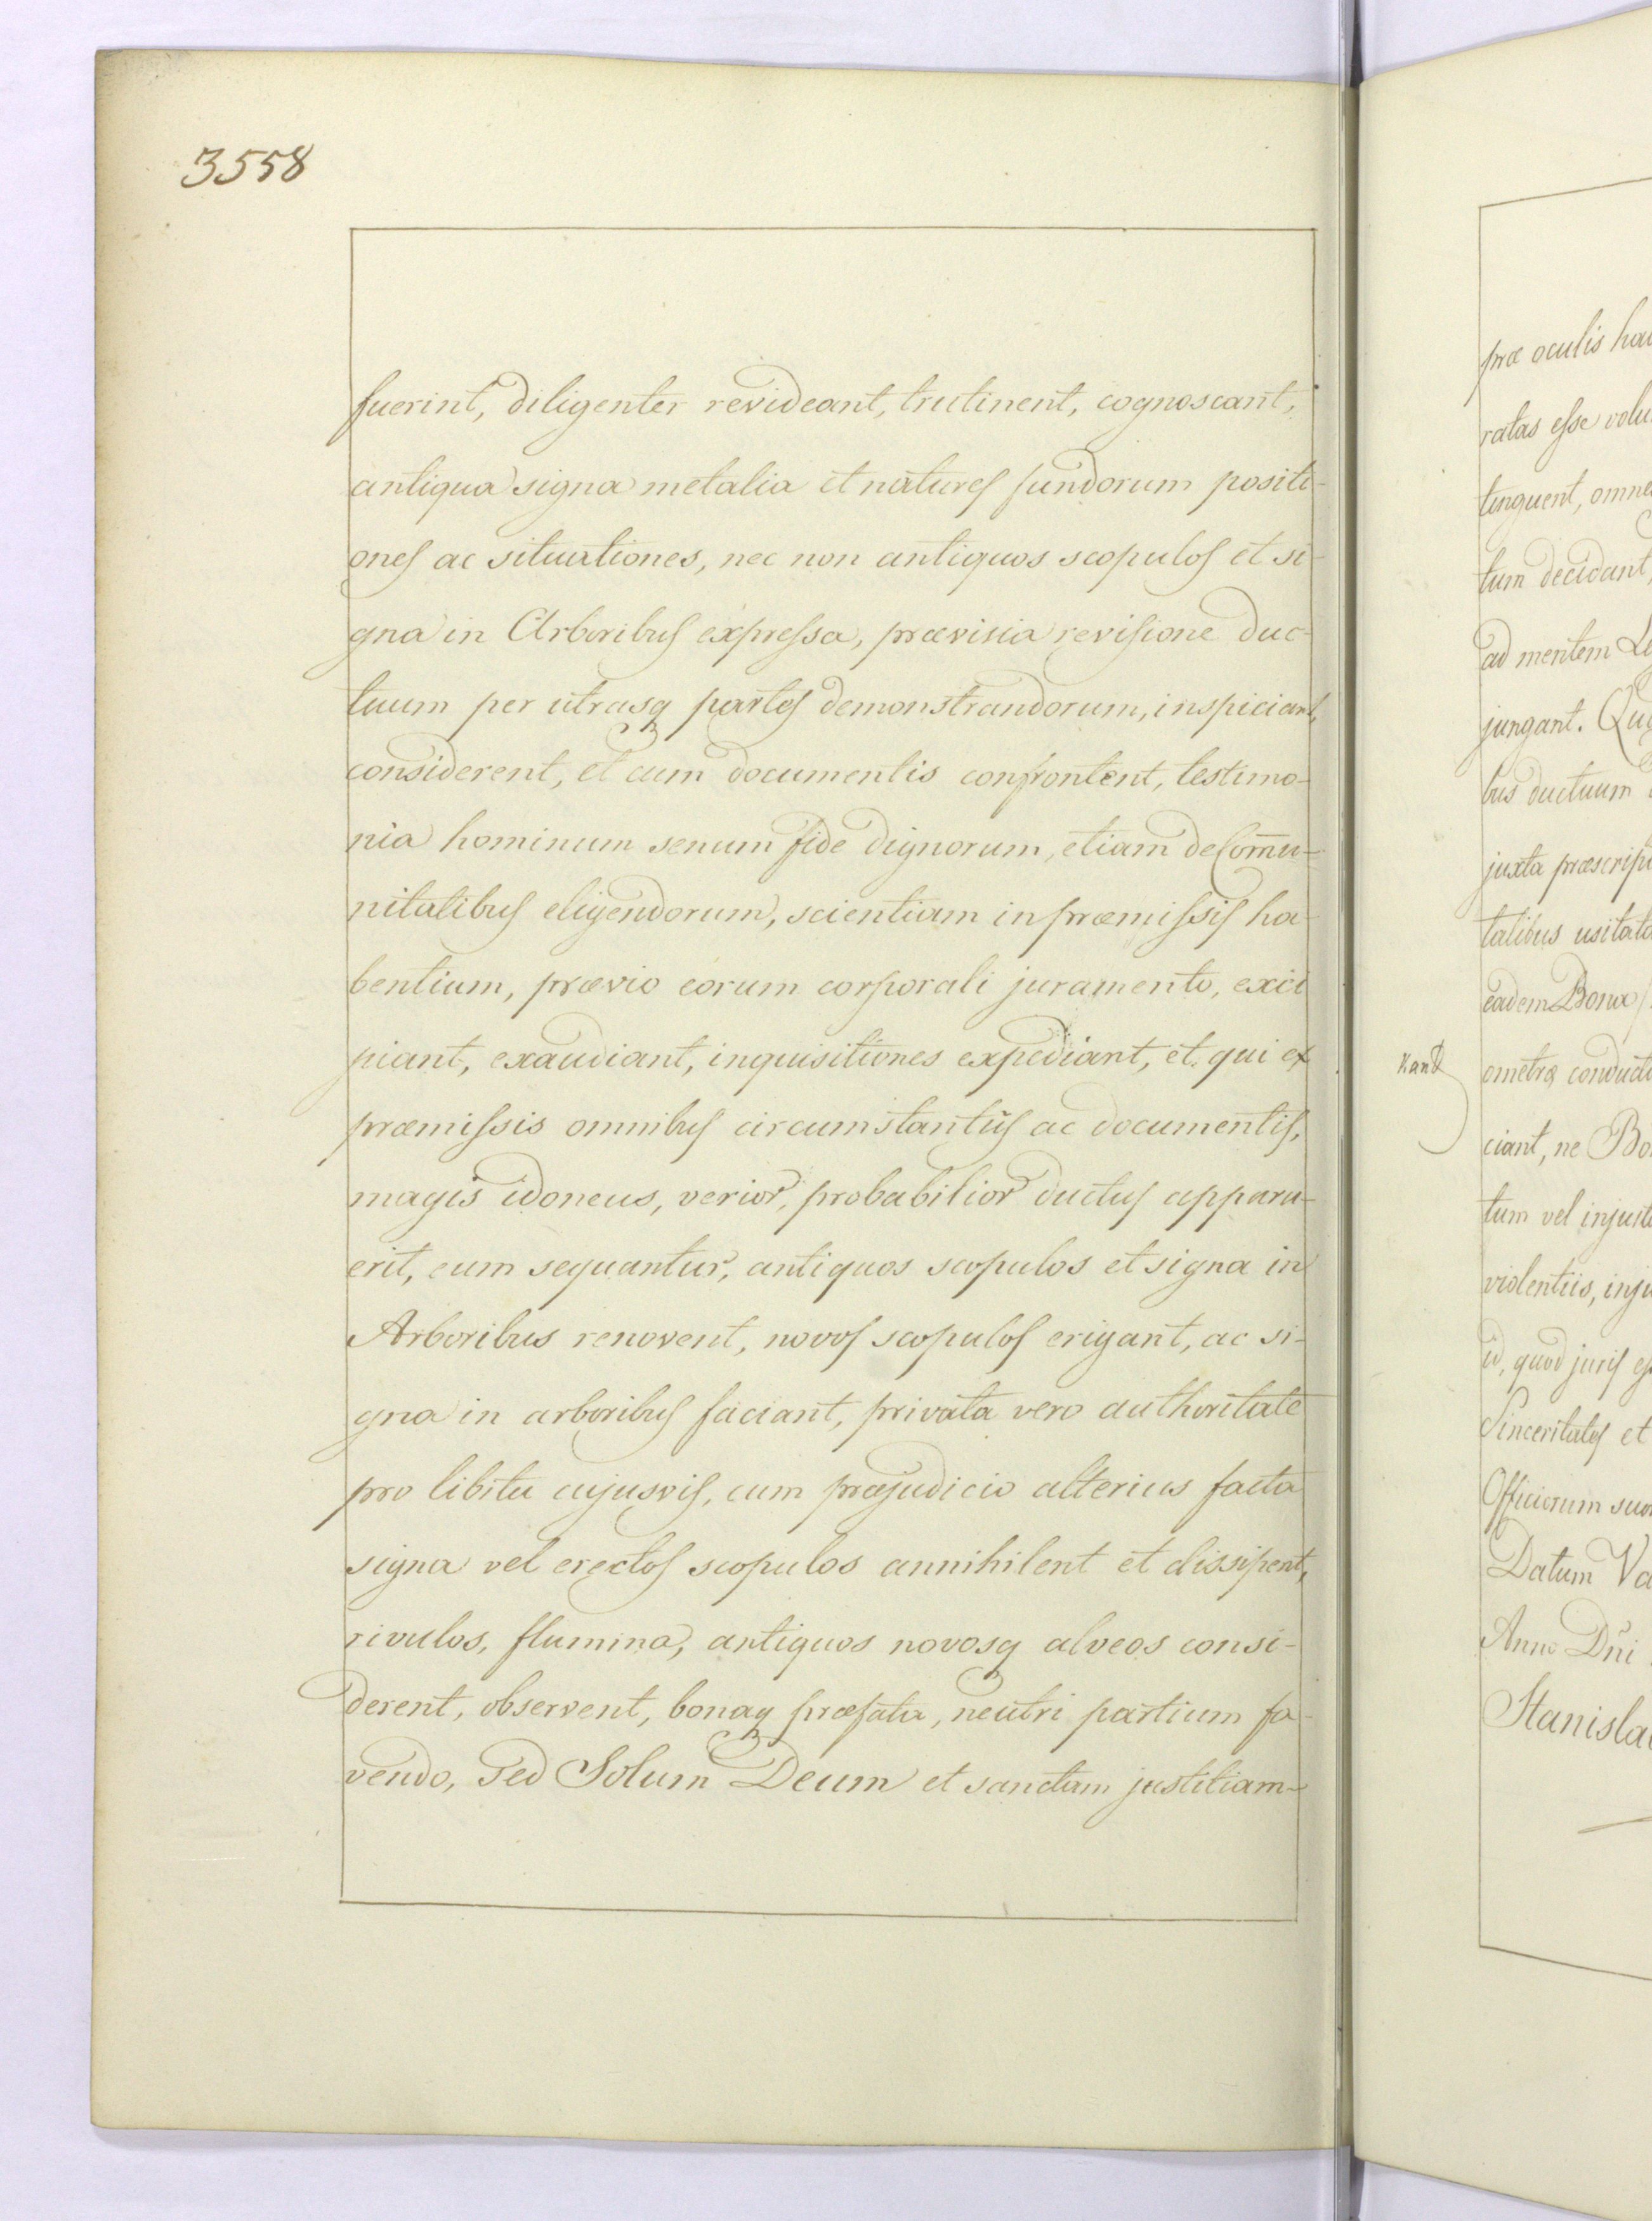 3558
fuerint, diligenter revideant, trutinent, cognoscant,
antiqua signa metalia et natures fundorum positi-
ones ac situationes, nec non antiquos scopulos et si-
gna in Arboribus expressa, prævisia revisione duc-
tuum per utrasq partes demonstrandorum, inspiciant,
considerent, et cum documentis confrontent, testimo-
nia hominum senum fide dignorum, etiam de Com̄u-
nitatibus eligendorum, scientiam in præmissis ha-
bentium, prævio eorum corporali juramento, exci
piant, exaudiant, inquisitiones expediant, et qui ex
præmissis omnibus circumstantiis ac documentis,
magis idoneus, verior, probabilior ductus apparu-
erit, eum sequantur, antiquos scopulos et signa in
Arboribus renovent, novos scopulos erigant, ac si-
gna in arboribus faciant, privata vero authoritate
pro libitu cujusvis, cum præjudicio alterius facta
signa vel erectos scopulos annihilent et dissipent,
rivulos, flumina, antiquos novosq alveos consi-
derent, observent, bonaq præfata, neutri partium fa-
vendo, Sed Solum Deum et sanctam justitiam-
præ oculis
ratas esse
tinguent,
tum decidant,
ad mentem
jungant.
bus ductuum
juxta
talibus
eadem Bona
ometræ
ciant, ne
tum vel
violentiis,
id, quod juris
Sinceritates et
Officiorum
Datum
Anno Dñi